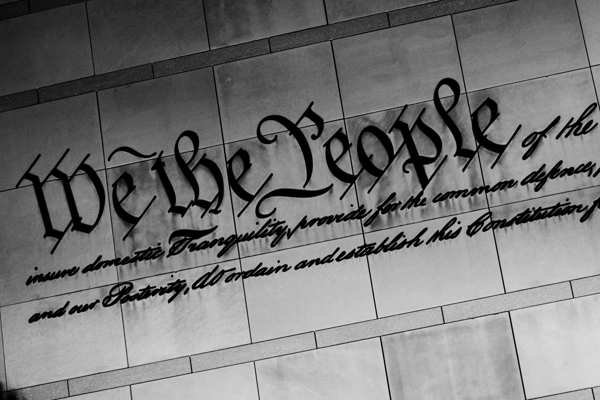 We the People of the
insure domestic Tranquility, provide for the common defence,
and our Posterity, do ordain and establish this Constitution f